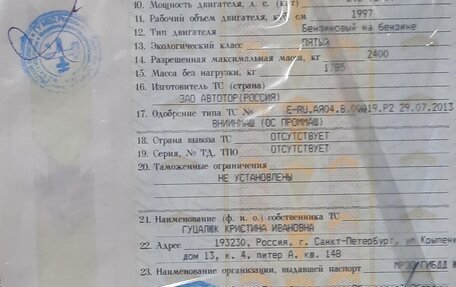 10. Мощность двигателя, л. с. (кВт)
11. Рабочий объем двигателя, к 1997
12. Тип двигателя Бензиновый на бензине
13. Экологический класс ПЯТЫЙ
14. Разрешенная максимальная масса, кг 2400
15. Масса без нагрузки, кг 1785
16. Изготовитель ТС (страна)
ЗАО АВТОТОР(РОССИЯ)
17. Одобрение типа ТС № E-RU.АЯ04.В.00019.Р2 29.07.2013
ВНИИНМАШ (ОС ПРОММАШ)
18. Страна вывоза ТС ОТСУТСТВУЕТ
19. Серия, № ТД, ТПО ОТСУТСТВУЕТ
20. Таможенные ограничения
НЕ УСТАНОВЛЕНЫ
21. Наименование (ф. и. о.) собственника ТС
ГУЦАЛЮК КРИСТИНА ИВАНОВНА
22. Адрес 193230, Россия, г. Санкт-Петербург, ул Крыленк
дом 13, к. 4, литер А, кв. 148
23. Наименование организации, выдавшей паспорт МРЭО ГИБДД